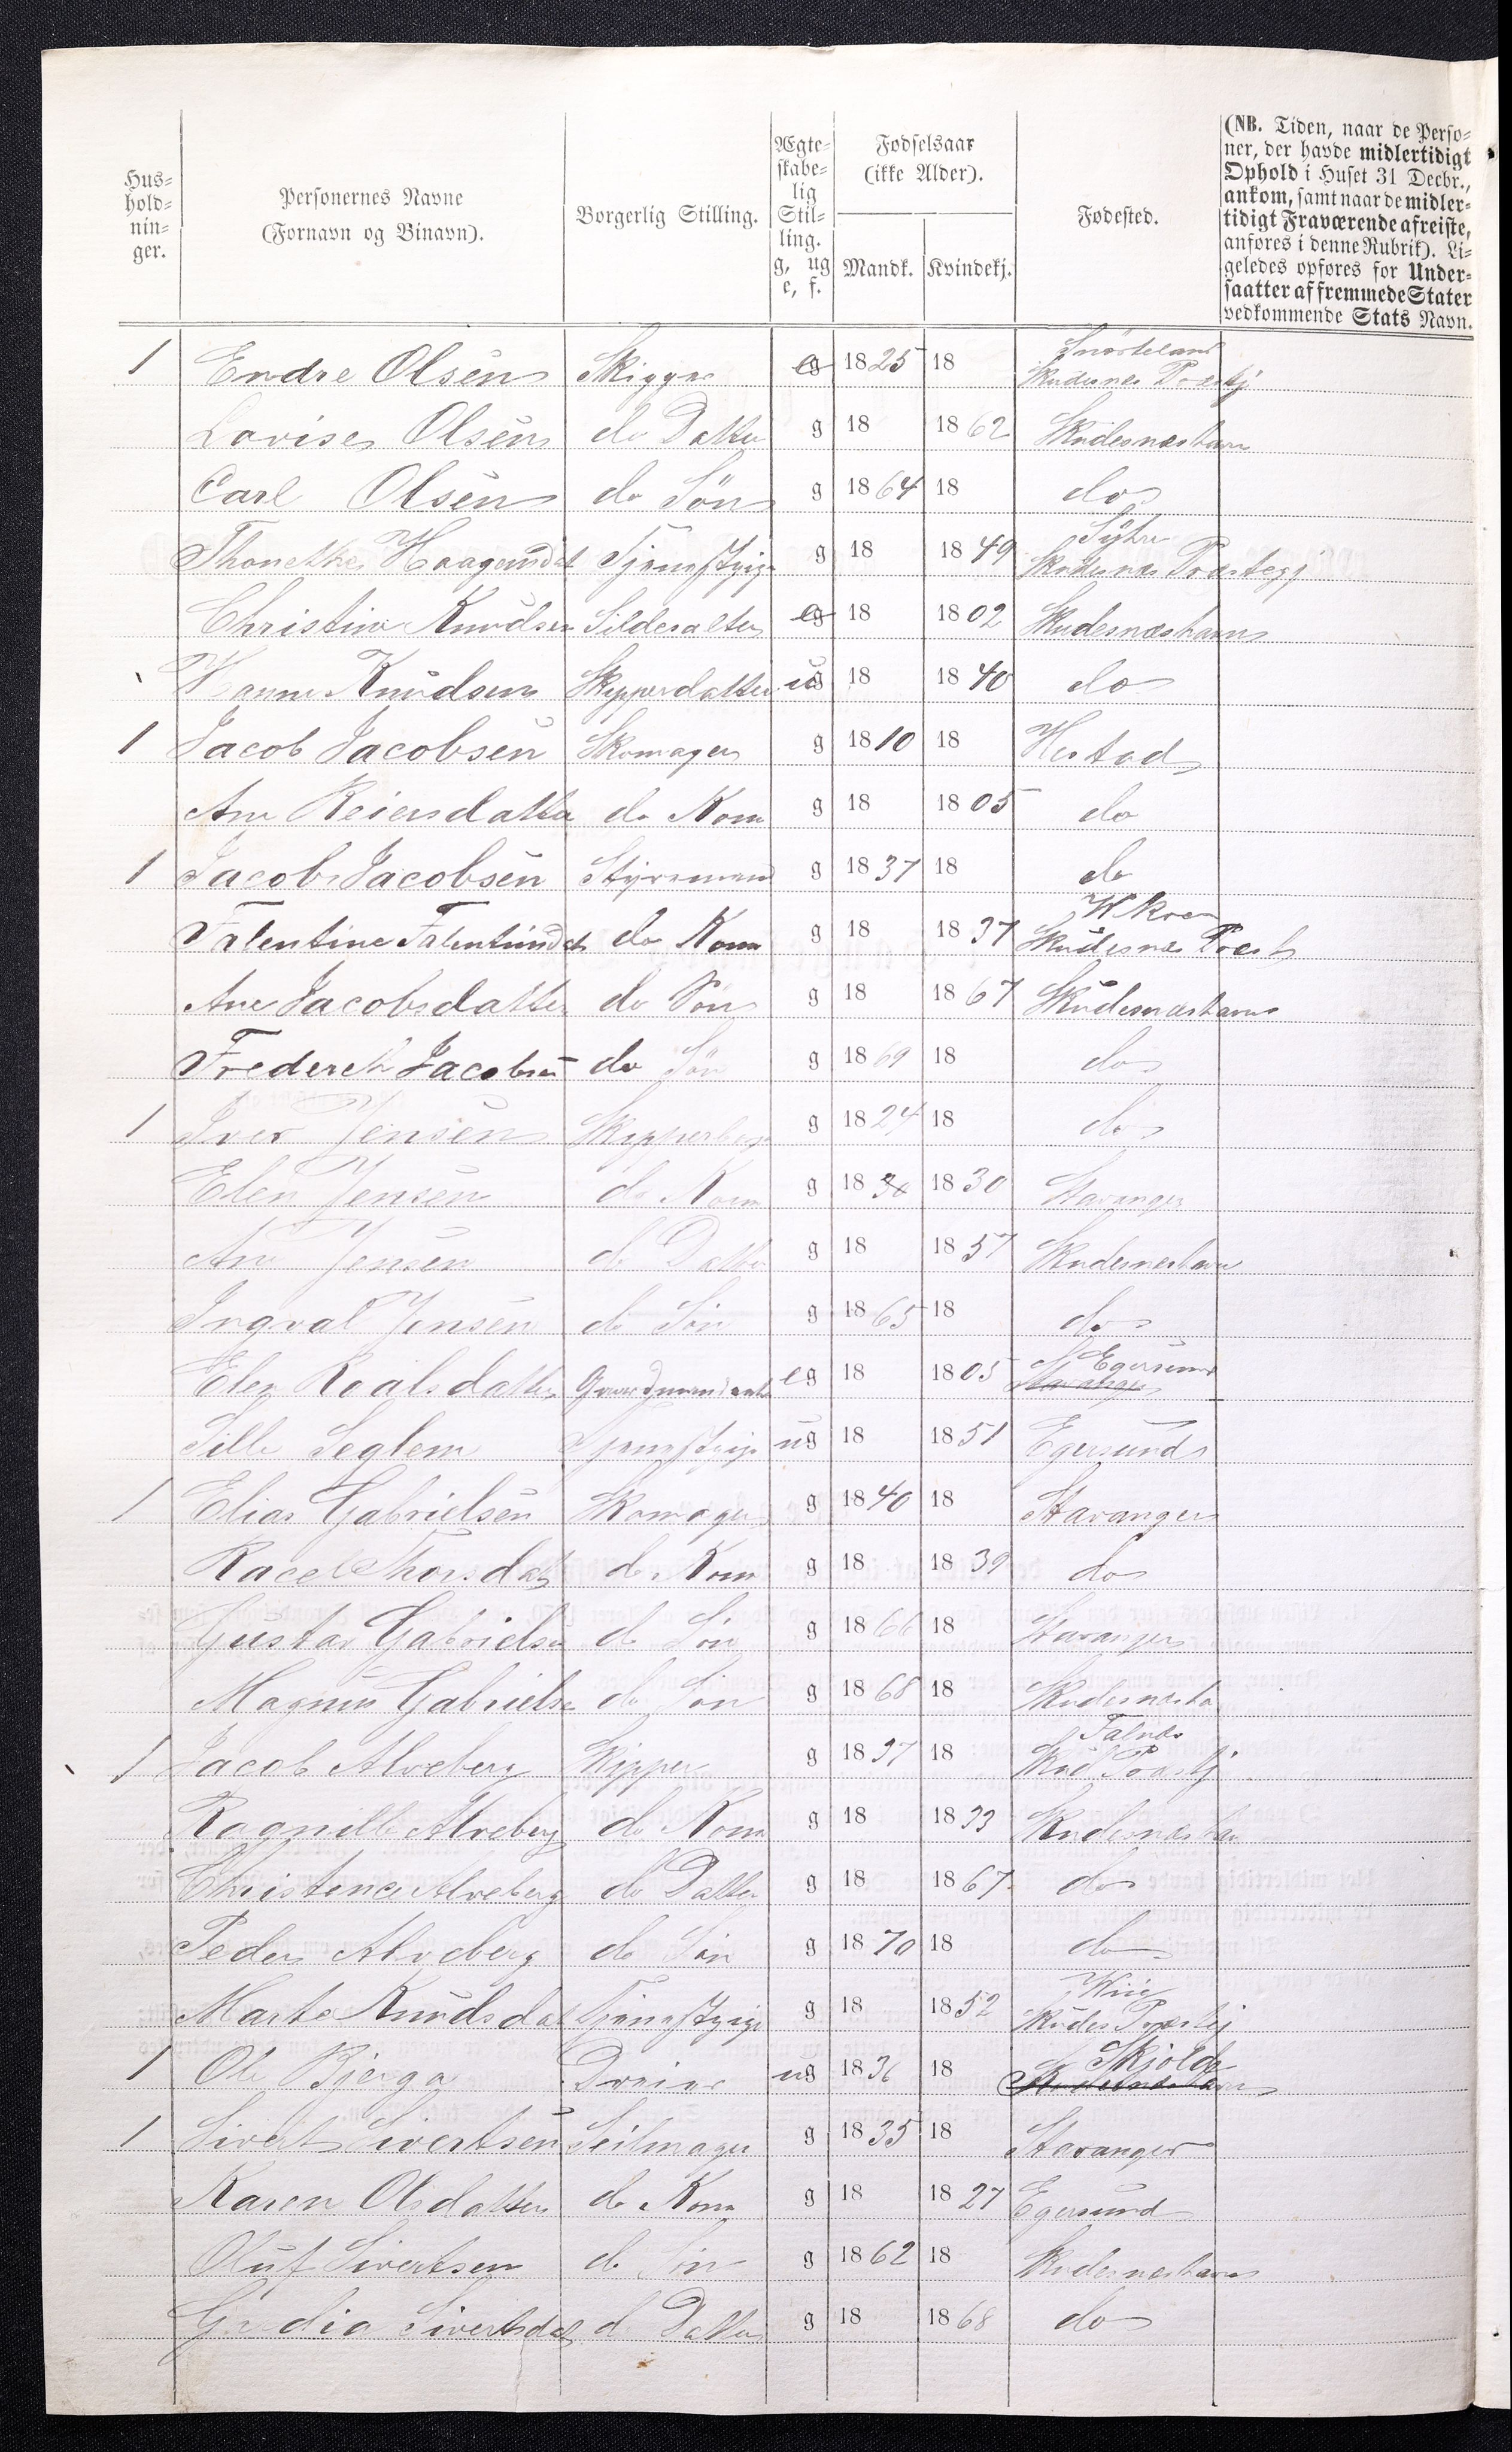 Hus-
hold-
nin-
ger.
Personernes Navne
(Fornavn og Binavn).
Borgerlig Stilling.
Ægte-
skabe-
lig
Stil-
ling.
g, ug
e, f.
Fødselsaar
(ikke Alder).
Mandk.
Kvindekj.
Fødested.
(NB. Tiden, naar de Perso-
ner, der havde midlertidigt
Ophold i Huset 31 Decbr.,
ankom, samt naar de midler-
tidigt Fraværende afreiste,
anføres i denne Rubrik). Li-
geledes opføres for Under-
saatter af fremmede Stater
vedkommende Stats Navn.
Snørteland
1 Endre Olsen e g 1825 18 Skudesnes Præstgj
Lovise Olsen do Datter g 18 1862 Skudesneshavn
Carl Olsen do Søn g 1864 18 do
Syhre
Thonethe Haagensdat Tjenestpige g 18 1849 Skudesnes Præstegj
Christine Knudsen Sildesalter e g 18 1802 Skudesneshavn
Hanne Knudsen Skipperdatter ug 18 1840 do
1 Jacob Jacobsen Skomager g 1810 18 Hestad
Ane Reiersdatter do Kone g 18 1805 do
1 Jacob Jacobsen Styrmand g 1837 18 do
Falentine Falentinsdat do Kone g 18 1837 Skudesnes Præst
Ane Jacobsdatter do Søn g 18 1867 Skudesneshavn
Frederik Jacobsen do Søn g 1869 18 do
1 Iver Jensen g 1824 18 do
Elen Jensen do Kone g 1830 1830 Stavanger
Ane Jensen do Datter g 18 1857 Skudesneshavn
Ingval Jensen do Søn g 1865 18 do
Egersund
Elen Roalsdatter e g 18 1805 Stavanger
Sille Seglem Tjenestpige ug 18 1851 Egersund
1 Elias Gabrielsen Skomager g 1840 18 Stavanger
Racel Thorsdat do Kone g 18 1839 do
Gustav Gabrielsen do Søn g 1866 18 Stavanger
Magnus Gabrielse do Søn g 1868 18 Skudesnesha
Falnes
1 Jacob Alveberg Skipper g 1837 18 Skud Præstgj
Ragnille Alveberg do Kone g 18 1833 Skudesneshav
Christence Alveberg do Datter g 18 1867 do
Peder Alveberg do Søn g 1870 18 do
Marte Knudsdat Tjenestpige g 18 1852 Skudes Præstgj
Skjolde
1 Ole Bjerga Dreier ug 1836 18 Skudesneshavn
1 Sivert Sivertsen Seilmager g 1835 18 Stavanger
Karen Olsdatter do Kone g 18 1827 Egersund
Oluf Sivertsen do Søn g 1862 18 Skudesneshavn
Sivertsdat do Datter g 18 1868 do